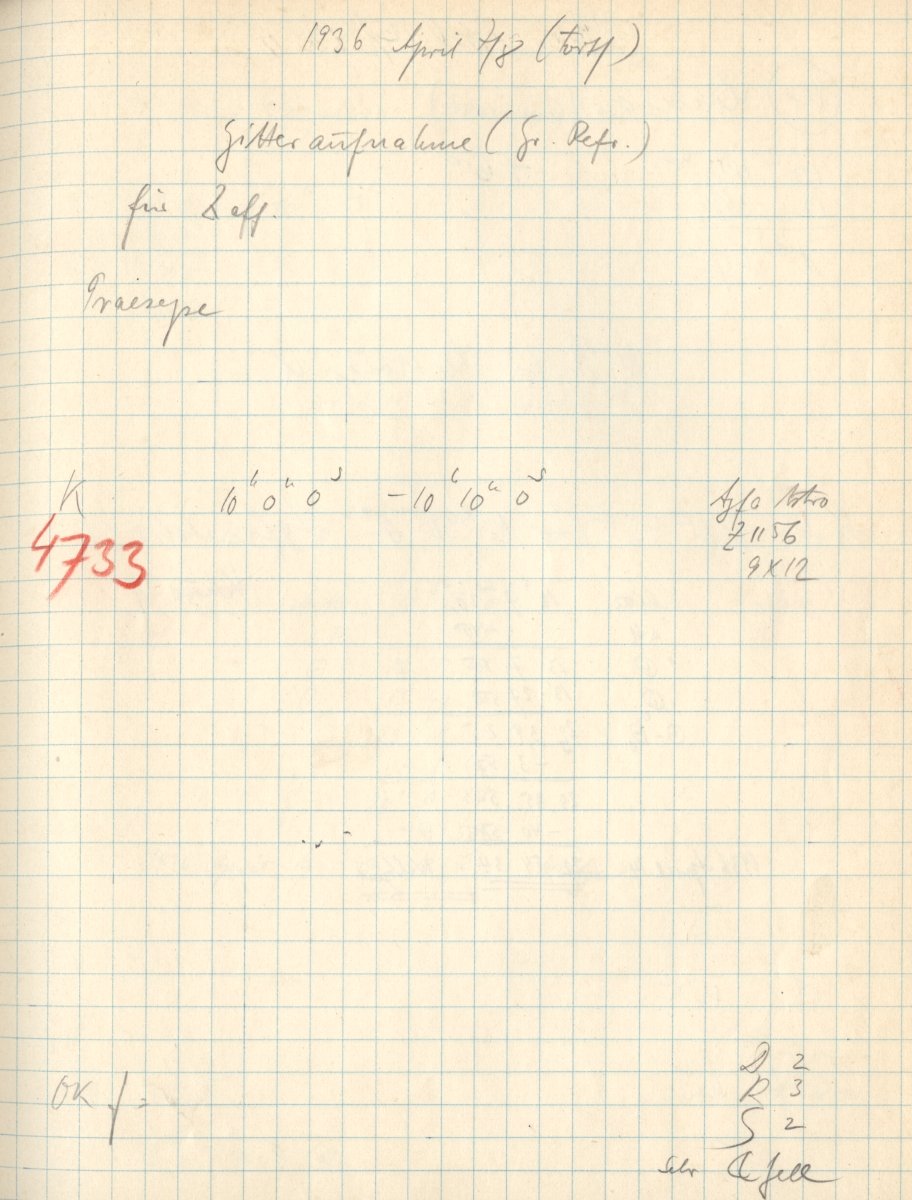 1936 April 7/8 (Forts)
Gitteraufnahme (Gr. Refr.)
für
Praesepe
K 10ʰ 0ᵐ 0ˢ – 10ʰ 10ᵐ 0ˢ Agfa Astro
4733 Z 1156
9 x 12
D 2
OK f = R 3
S 2
sehr hell